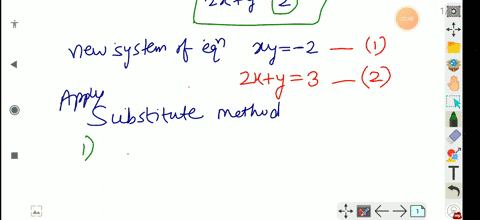 2x+y (2)
new system of eqⁿ xy=-2 — (1)
2x+y=3 — (2)
Apply
Substitute method
1)